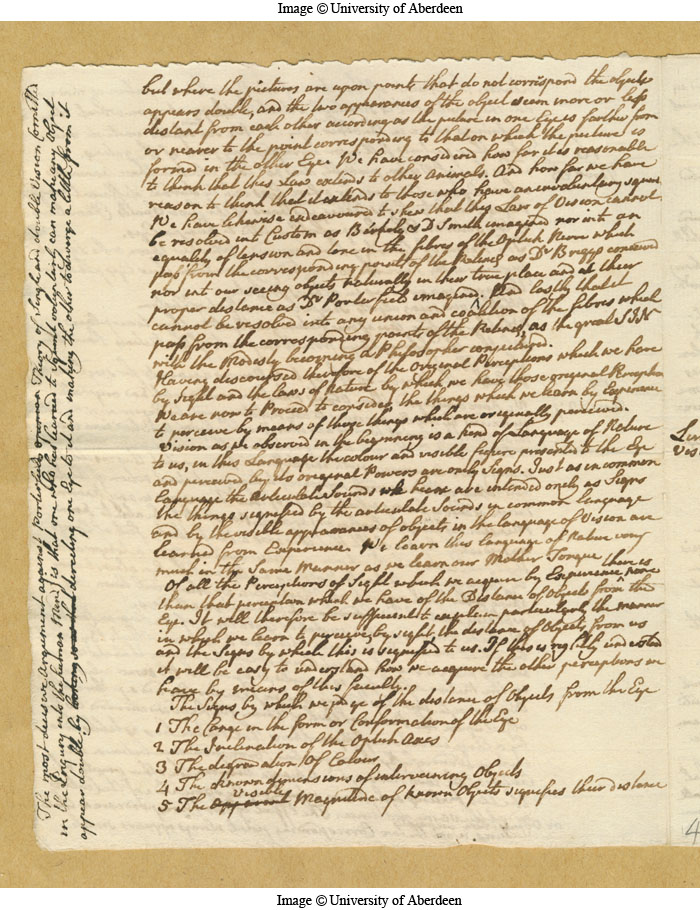 Image © University of Aberdeen
but where the pictures are upon points that do not correspond the object
appears double, and the two appearances of the object seem more or less
distant from each other according as the picture in one Eye is farther from
or nearer to the point corresponding to that on which the picture is
formed in the other Eye. We have considered how far it is reasonable
to think that this Law extends to other Animals. And how far we have
reason to think that it extends to those who have an involuntary squint
We have likewise endeavoured to shew that this Law of Vision cannot
be resolved into Custom as Bishop & Dr Smith imagined nor into an
equality of tension and tone in the fibres of the Optick Nerve which
pass from the corresponding points of the Retina as Dr Briggs conceived
nor into our seeing objects naturally in their true place and at their
proper distance as Dr Porterfield imagined. And lastly that it
cannot be resolved into any union and coalition of the fibres which
pass from the corresponding points of the Retina, as the great SIN
with the Modesty becoming a Philosopher conjectured.
Having discoursed therefore of the Original Perceptions which we have
by Sight and the laws of Nature by which we have those original Perceptions
We are now to Proceed to consider the things which we learn by Experience
to perceive by means of those things which are originally perceived.
Vision as we observed in the beginning is a kind of Language of Nature
to us, in this Language the colour and visible figure presented to the Eye
and perceived by its original Powers are only Signs. Just as in common
Language the Articulate Sounds we hear are intended only as Signs
the things signified by the articulate Sounds in common Language
and by the visible appearances of objects in the language of Vision are
learned from Experience. We learn this language of Nature very
much in the Same Manner as we learn our Mother Tongue
Of all the Perceptions of Sight which we acquire by Experience there is none
than that perception which we have of the Distance of Objects from the
Eye. It will therefore be sufficient to explain particularly the manner
in which we learn to perceive by sight, the distance of Objects from us
and the Signs by which this is signified to us. If this is rightly understood
it will be easy to understand how we acquire the other perceptions we
have by means of this faculty.
The Signs by which we judge of the distance of Objects from the Eye
1 The Cange in the form or Conformation of the Eye
2 The Inclination of the Optick Axes
3 The degradation Of Colour
4 The known dimensions of intervening Objects
5 The apparent visible Magnitude of known Objects signifies their distance
The most decisive Argument against Porterfields Theory of Single and double Vision (omitted
in the Inquiry into the human Mind) is that one who has learned to squint voluntarily can make any Object
appear double by directing one Eye to it and making the other to diverge a little from it
4
Image © University of Aberdeen